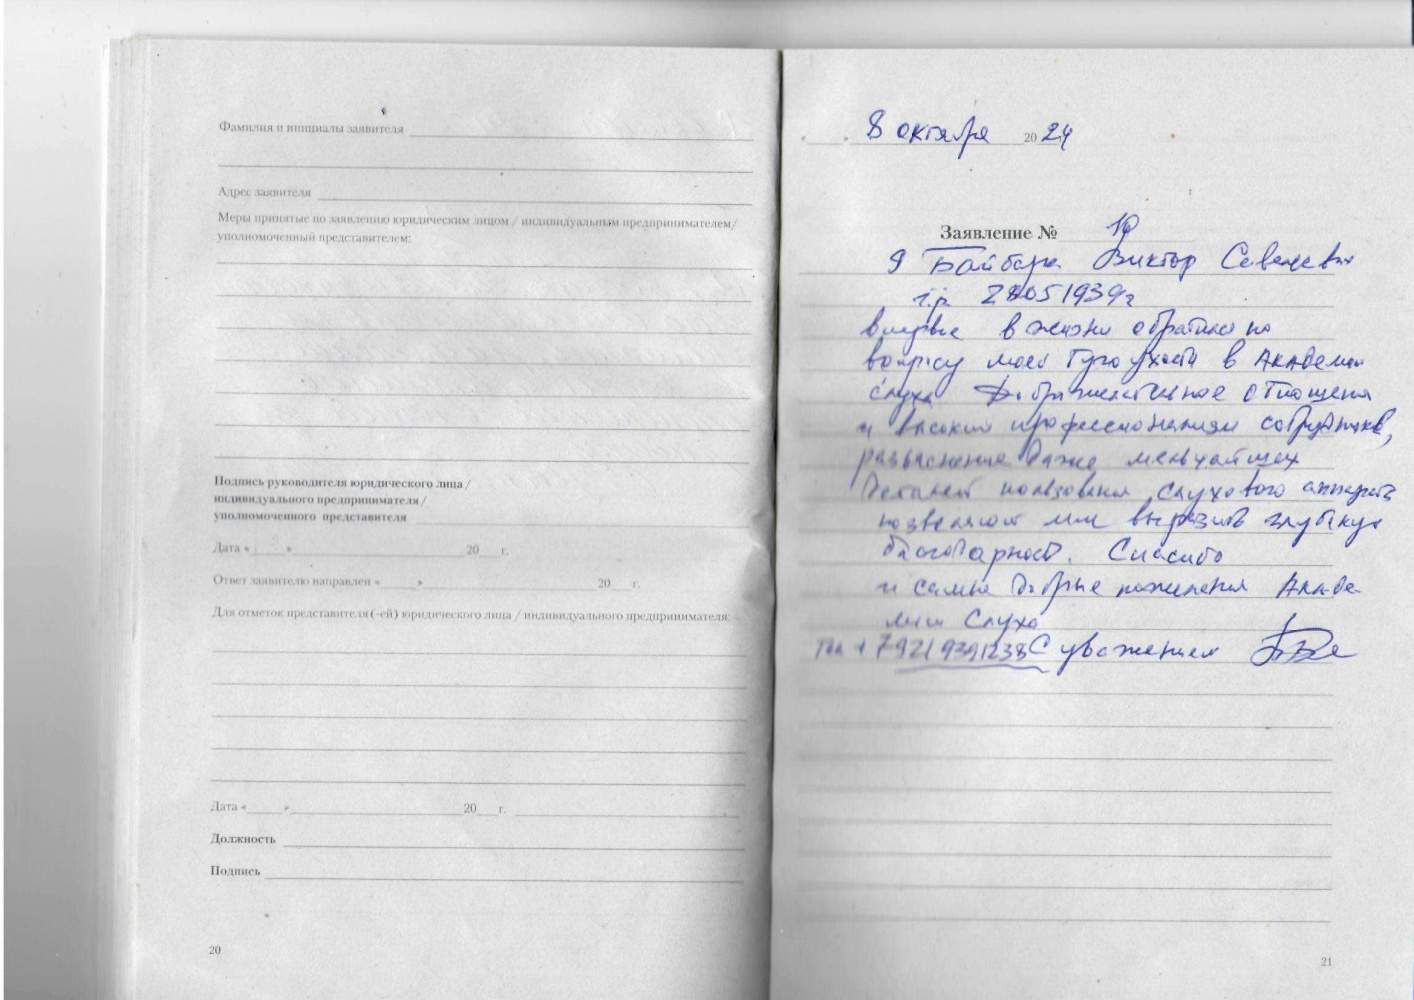 Фамилия и инициалы заявителя
Адрес заявителя
Меры принятые по заявлению юридическим лицом / индивидуальным предпринимателем/
уполномоченный представителем:
Подпись руководителя юридического лица /
индивидуального предпринимателя /
уполномоченного представителя
Дата « » 20 г.
Ответ заявителю направлен « » 20 г.
Для отметок представителя (-ей) юридического лица / индивидуального предпринимателя:
Дата « » 20 г.
Должность
Подпись
20
« » 8 октября 2024
Заявление № 10
Я Байбара Виктор
г.р. 28051939г
впервые в жизни обратился по
вопросу моей тугоухости в Академии
слуха Доброжелательное отношения
и высокий профессионализм сотрудников,
разъяснение даже мельчайших
деталей пользования слухового аппарата
позволяют мне выразить глубокую
благодарность. Спасибо
и самые добрые пожелания Акаде
мии Слуха
тел +79219391238 С уважением
21